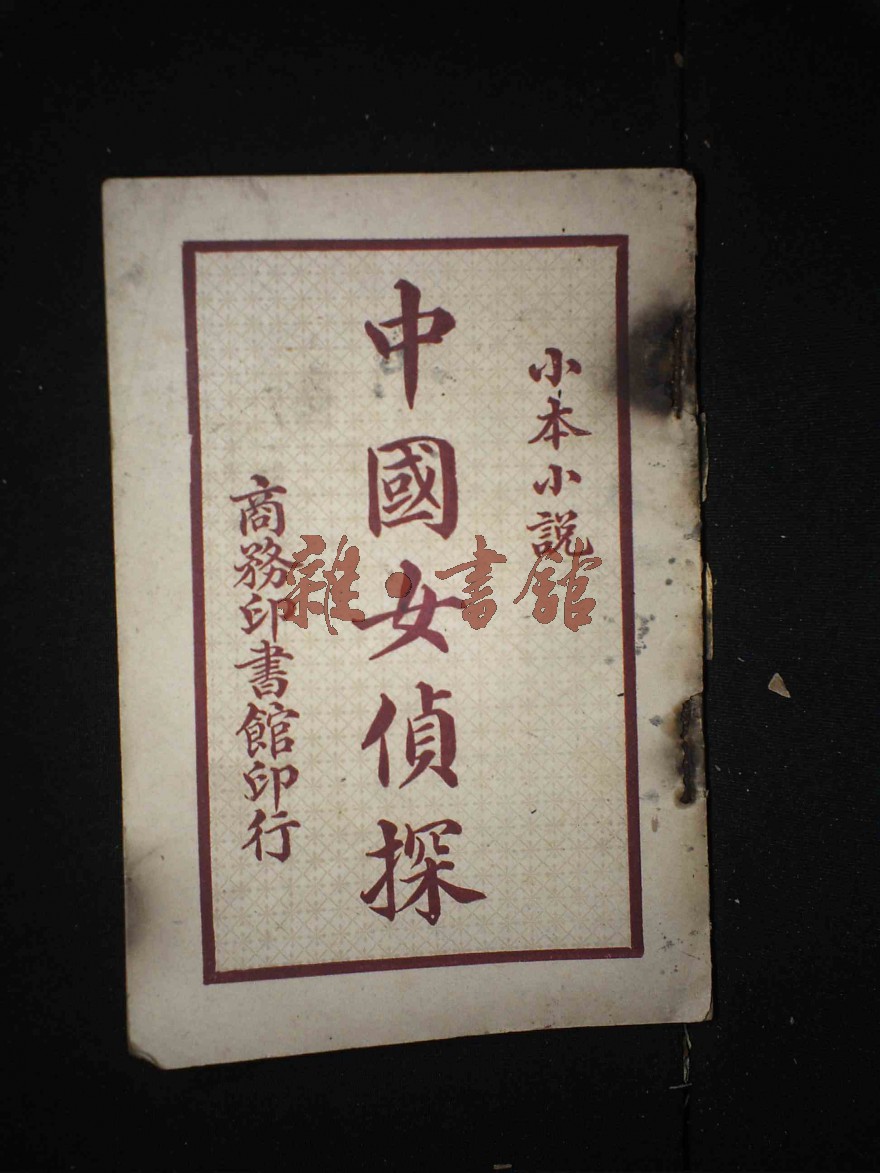 小本小説
中國女偵探
商務印書館印行
雜·書館